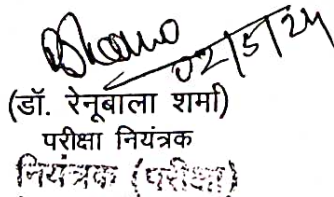 02/5/24
(डॉ. रेनूबाला शर्मा)
परीक्षा नियंत्रक
नियंत्रक (परीक्षा)